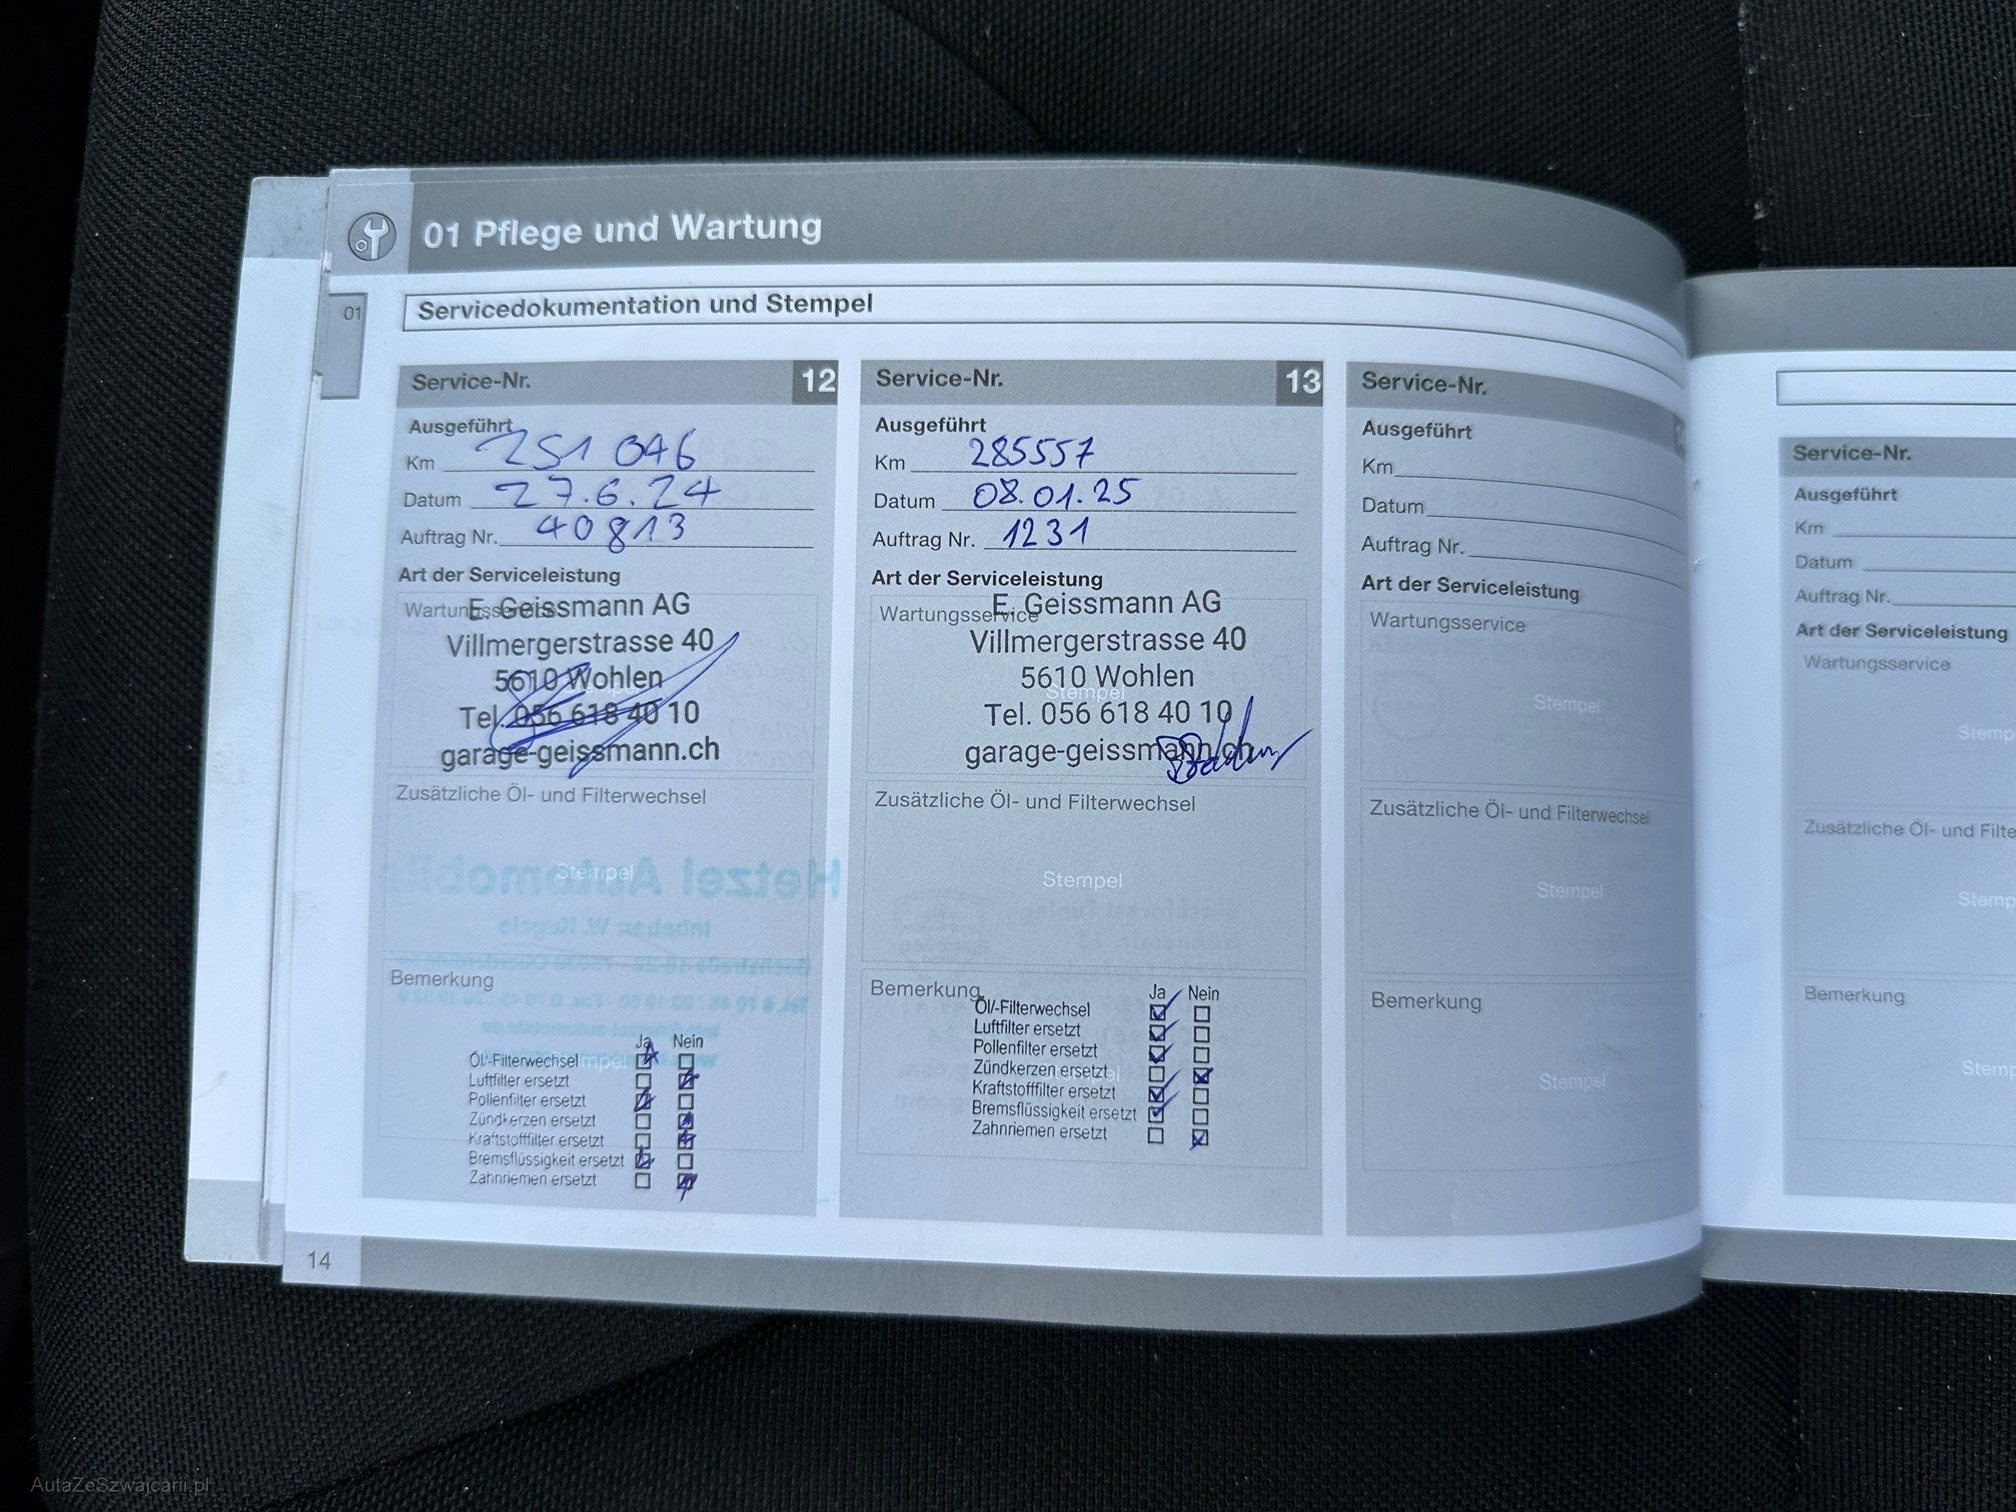 01 Pflege und Wartung
01
Servicedokumentation und Stempel
Service-Nr. 12
Ausgeführt
Km 251 046
Datum 27.6.24
Auftrag Nr. 40813
Art der Serviceleistung
Wartungsservice
E. Geissmann AG
Villmergerstrasse 40
5610 Wohlen
Tel. 056 618 40 10
garage-geissmann.ch
Zusätzliche Öl- und Filterwechsel
Stempel
Bemerkung
Ja Nein
Öl/-Filterwechsel
Luftfilter ersetzt
Pollenfilter ersetzt
Zündkerzen ersetzt
Kraftstofffilter ersetzt
Bremsflüssigkeit ersetzt
Zahnriemen ersetzt
14
Service-Nr. 13
Ausgeführt
Km 285557
Datum 08.01.25
Auftrag Nr. 1231
Art der Serviceleistung
Wartungsservice
E. Geissmann AG
Villmergerstrasse 40
5610 Wohlen
Stempel
Tel. 056 618 40 10
garage-geissmann.ch
Zusätzliche Öl- und Filterwechsel
Stempel
Bemerkung
Ja Nein
Öl/-Filterwechsel
Luftfilter ersetzt
Pollenfilter ersetzt
Zündkerzen ersetzt
Kraftstofffilter ersetzt
Bremsflüssigkeit ersetzt
Zahnriemen ersetzt
Service-Nr.
Ausgeführt
Km
Datum
Auftrag Nr.
Art der Serviceleistung
Wartungsservice
Stempel
Zusätzliche Öl- und Filterwechsel
Stempel
Bemerkung
Stempel
Service-Nr.
Ausgeführt
Km
Datum
Auftrag Nr.
Art der Serviceleistung
Wartungsservice
Stemp
Zusätzliche Öl- und Filte
Stemp
Bemerkung
Stemp
AutaZeSzwajcarii.pl